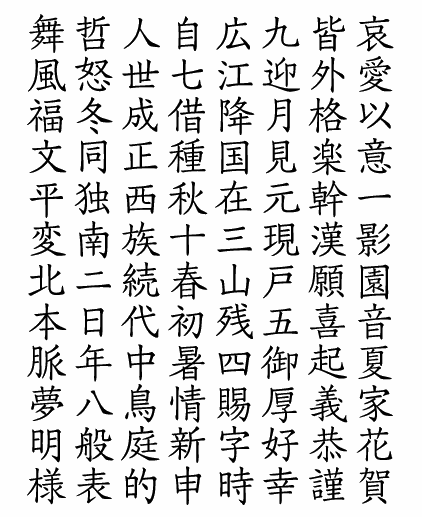 哀愛以意一影園音夏家花賀
皆外格楽幹漢願喜起義恭謹
九迎月見元現戸五御厚好幸
広江降国在三山残四賜字時
自七借種秋十春初暑情新申
人世成正西族続代中鳥庭的
哲怒冬同独南二日年八般表
舞風福文平変北本脈夢明様